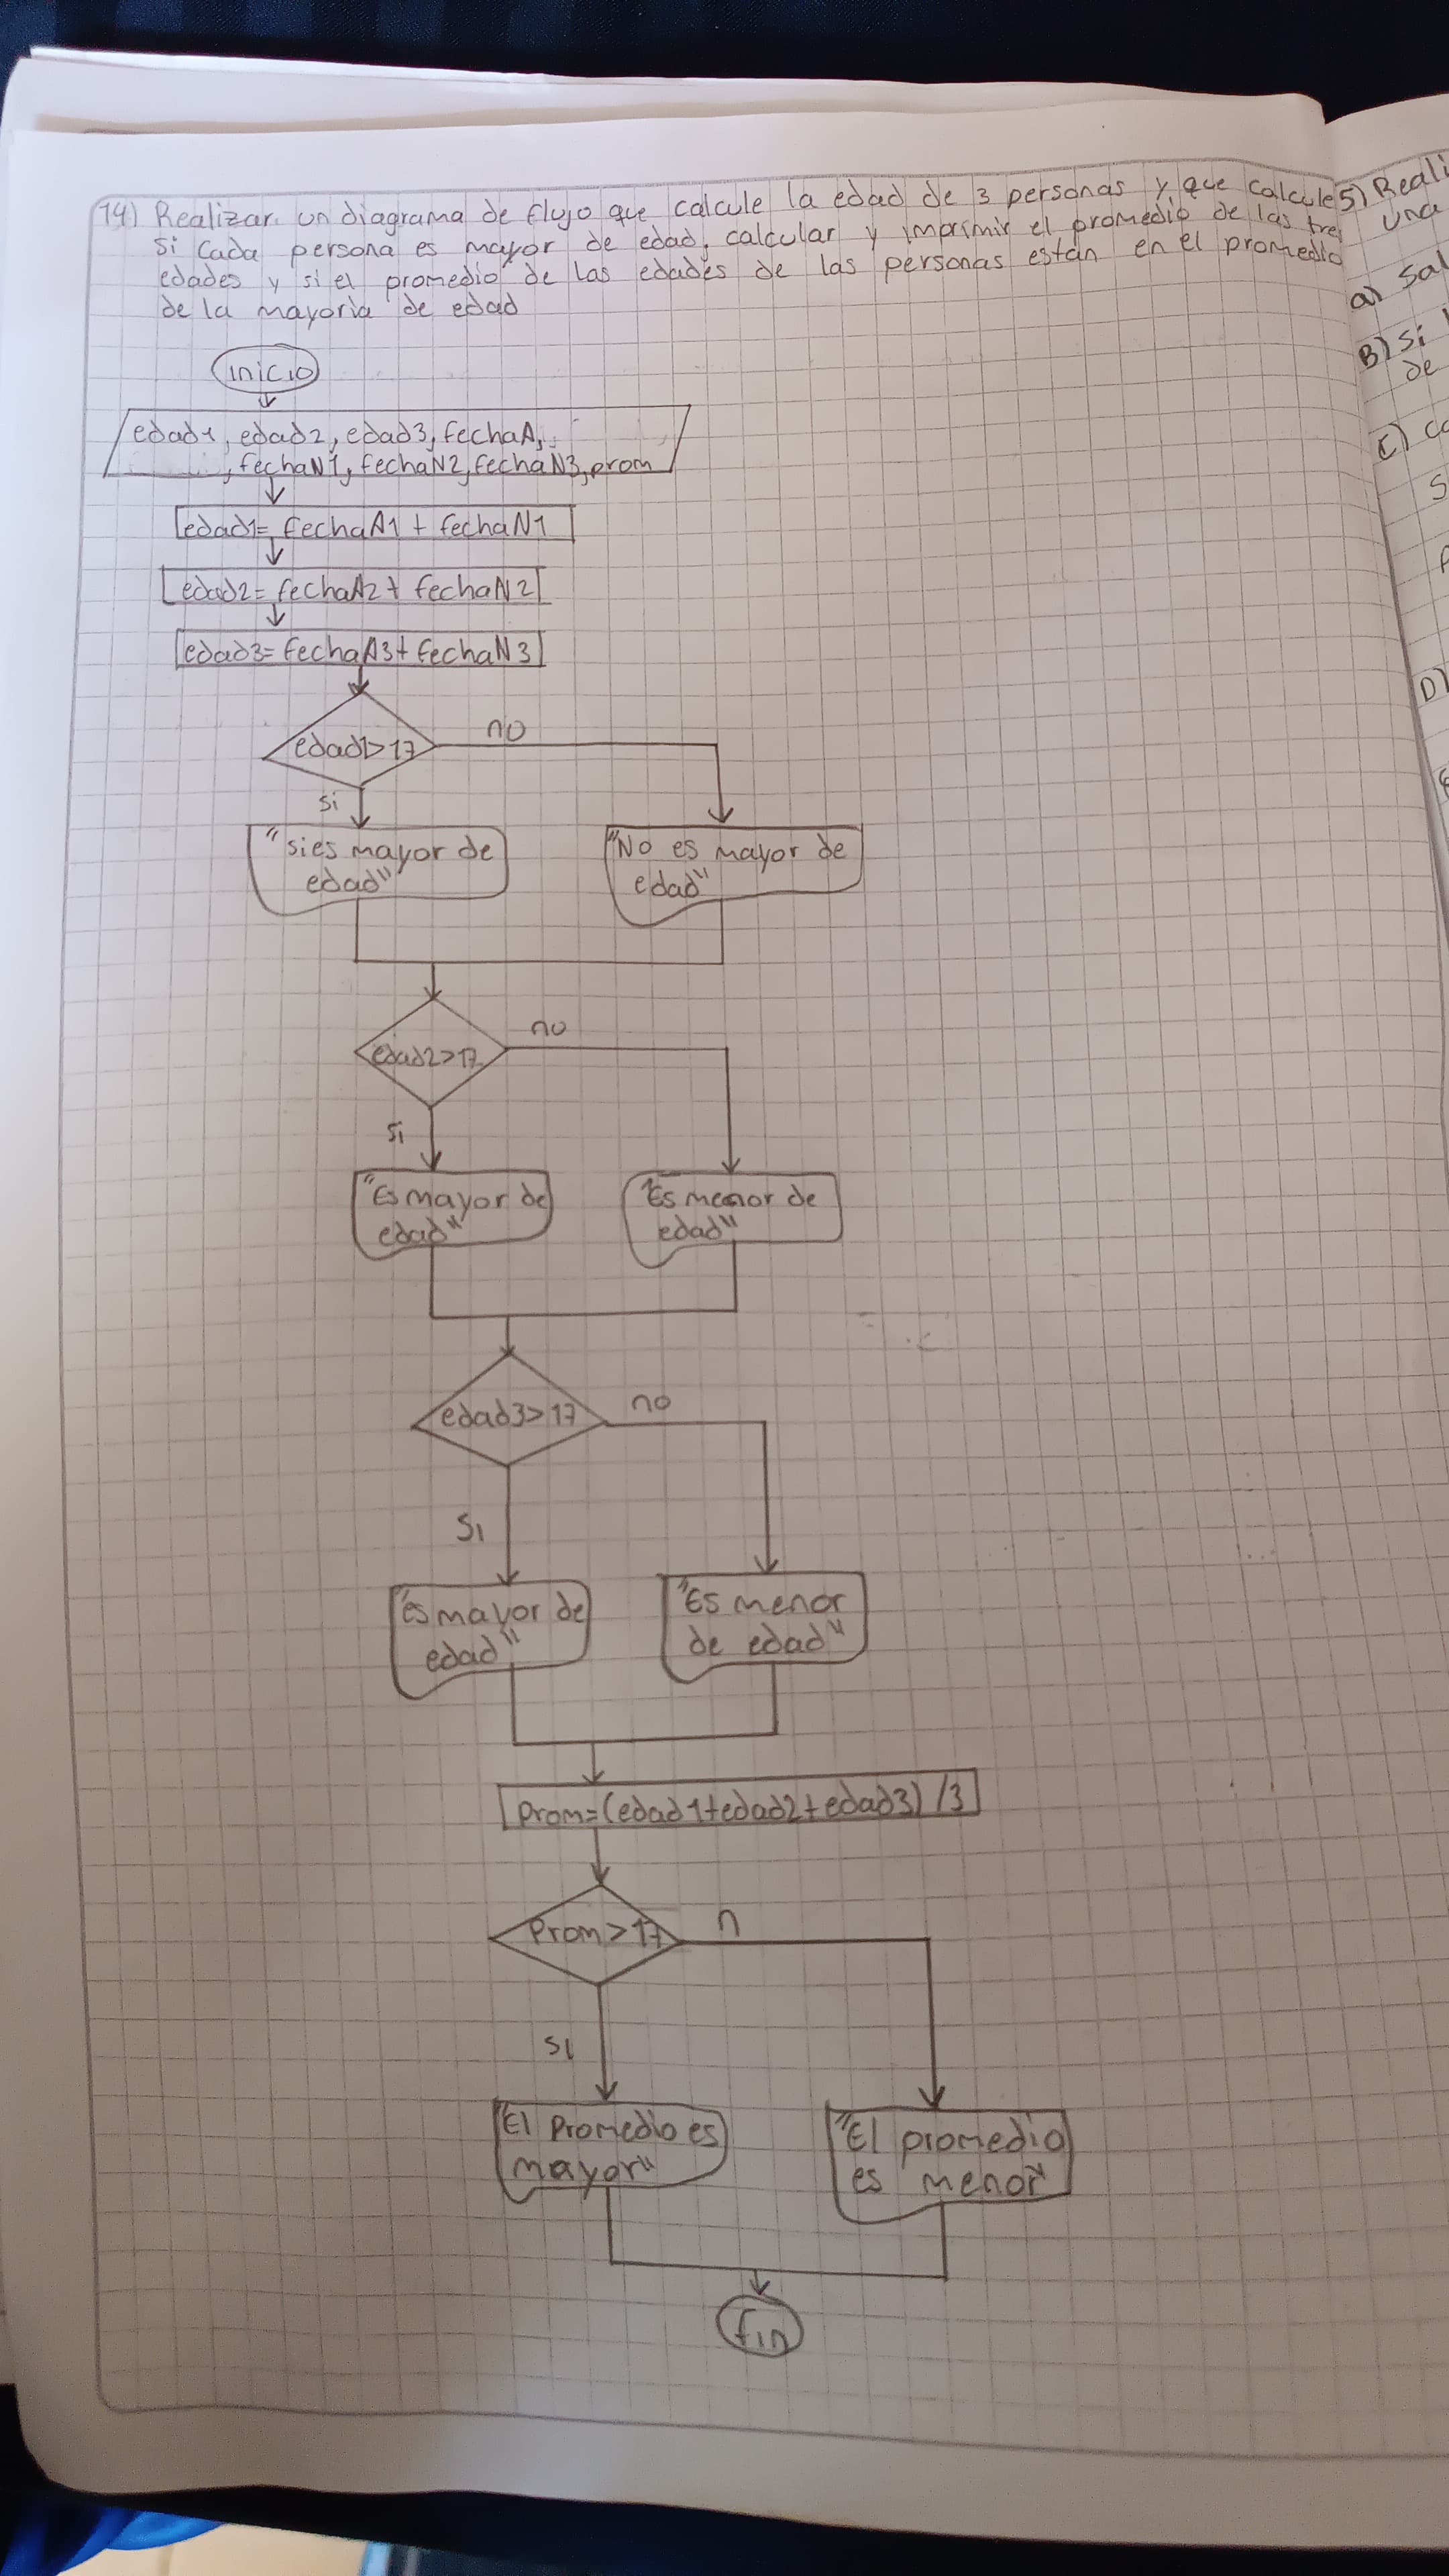 14) Realizar un diagrama de flujo que calcule la edad de 3 personas y que calcule
si cada persona es mayor de edad, calcular y imprimir el promedio de las tres
edades y si el promedio de las edades de las personas están en el promedio
de la mayoria de edad
inicio
edad1, edad2, edad3, fechaA,
, fechaN1, fechaN2, fechaN3, prom
edad1= fechaA1 + fechaN1
edad2= fechaA2 + fechaN2
edad3= fechaA3+ fechaN3
edad1>17
no
si
"si es mayor de
edad"
"No es mayor de
edad"
edad2>17
no
Si
"Es mayor de
edad"
"Es menor de
edad"
edad3>17
no
Si
"es mayor de
edad"
"Es menor
de edad"
Prom=(edad1+edad2+edad3) /3
Prom>17
n
si
"El Promedio es
mayor"
"El promedio
es menor"
fin
5) Reali
una
a) Sal
B) Si
de
C) Co
S
D)